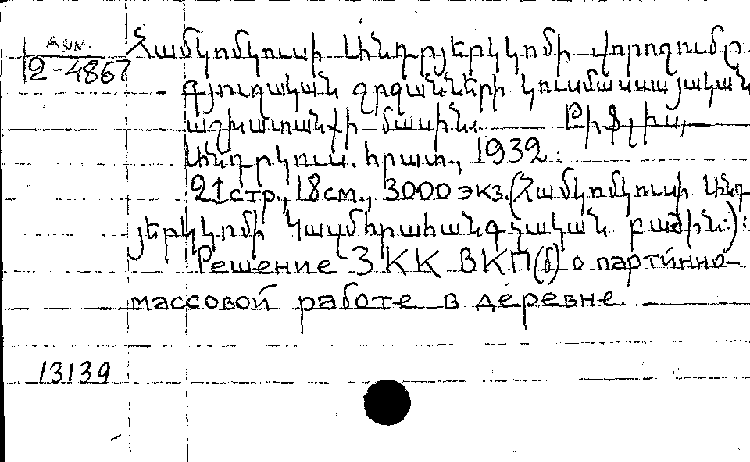 Арм.
2-4867
Համկոմկուսի Անդրյերկկոմի վորոշումը
գյուղական շրջանների կուսմասսայական
աշխատանքի մասին. Թիֆլիս,
Անդրկուս. հրատ., 1932.
21 стр., 18 см., 3000 экз. (Համկոմկուսի Անդ
յերկկոմի կազմ բաժին):
Решение ЗКК ВКП(б) о партийно-
массовой работе в деревне.
13139